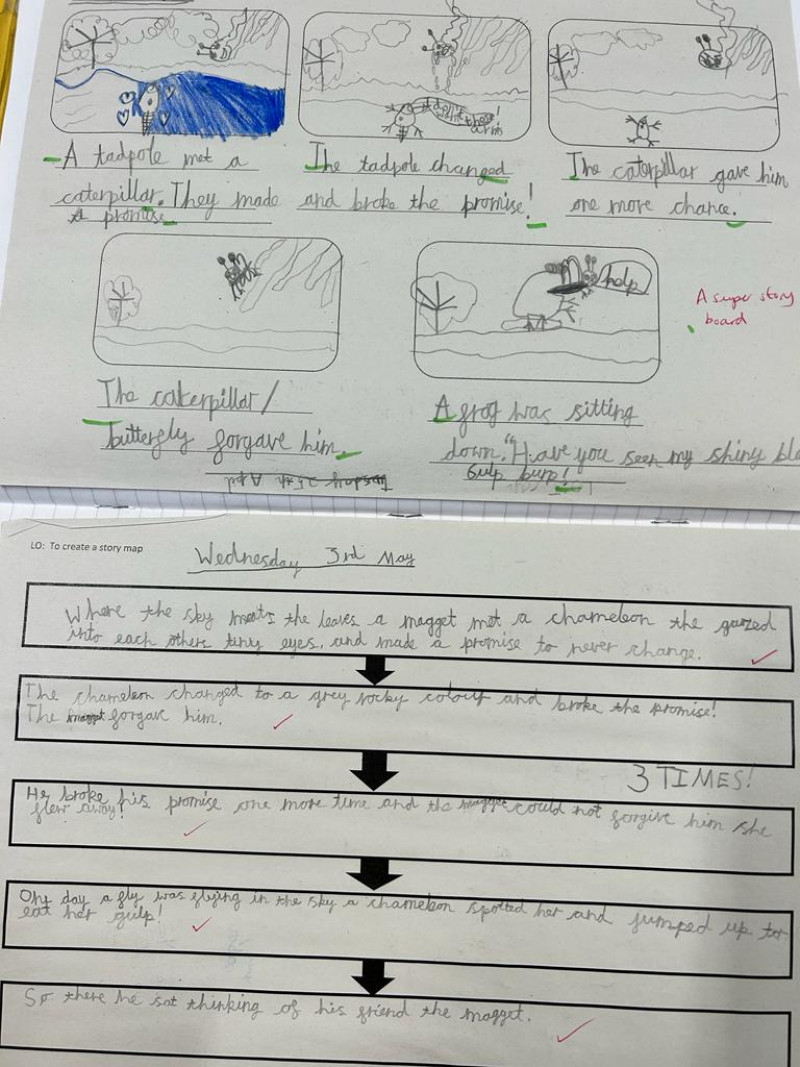 help
A tadpole met a
caterpillar. They made
A promise
The tadpole changed
and broke the promise!
The caterpillar gave him
one more chance.
A super story
board
The caterpillar/
butterfly forgave him.
A frog was sitting
down. "Have you seen my shiny bla
Gulp burp!
Tuesday 25th April
LO: To create a story map
Wednesday 3rd May
Where the sky meats the leaves a magget met a chameleon the gazed
into each others tiny eyes, and made a promise to never change.
The chameleon changed to a grey rocky colour and broke the promise!
The magget forgave him.
3 TIMES!
He broke his promise one more time and the magget could not forgive him she
flew away!
One day a fly was flying in the sky a chameleon spotted her and jumped up to
eat her gulp!
So there he sat thinking of his friend the magget.